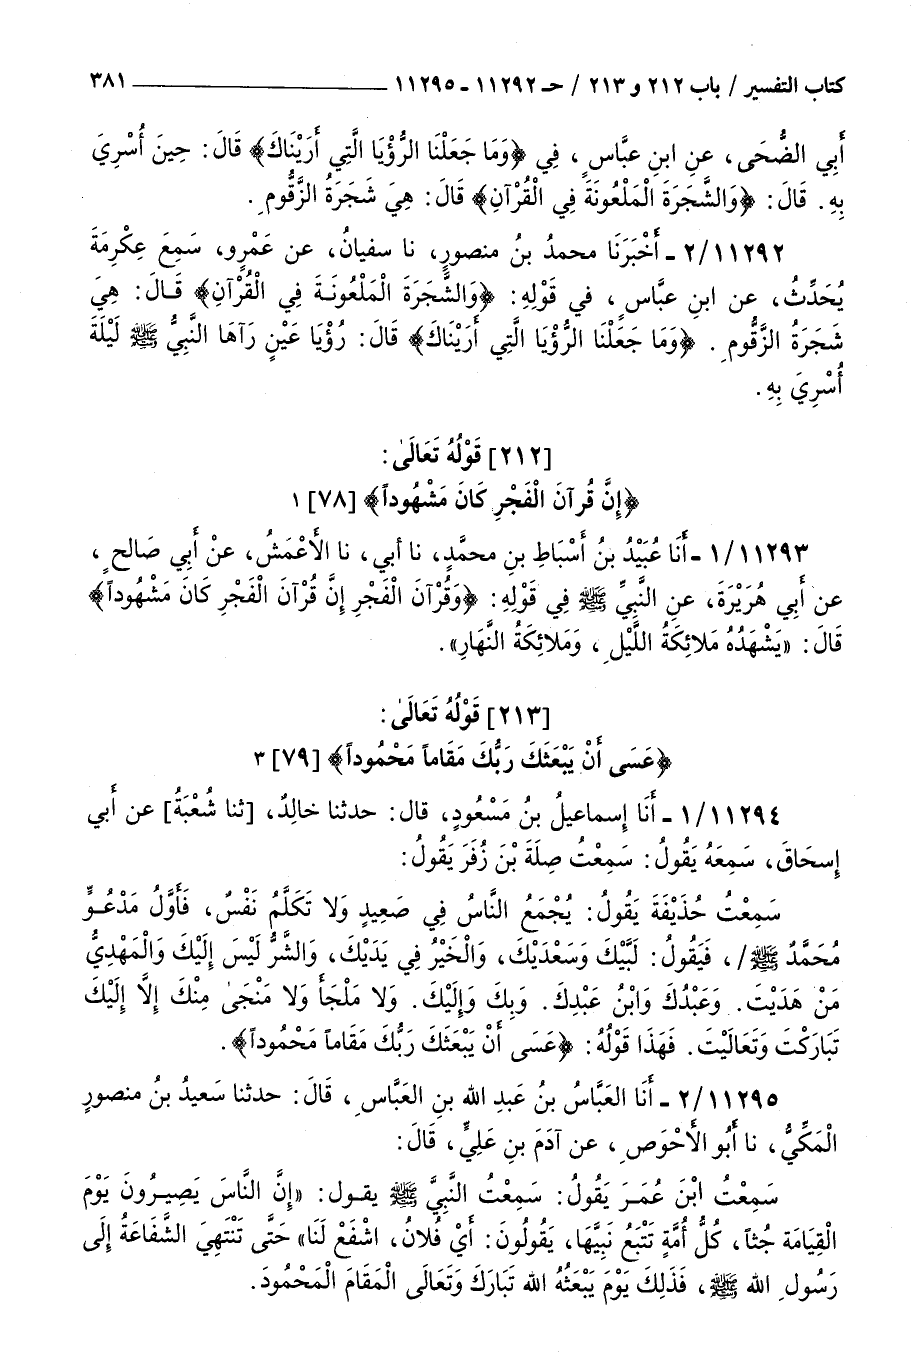 كتاب التفسير / باب ٢١٢ و ٢١٣ / حـ ١١٢٩٢ ـ ١١٢٩٥ ــــــــــ ٣٨١
أَبي الضُّحَى، عنِ ابنِ عبَّاسٍ، فِي ﴿وَمَا جَعَلْنَا الرُّؤْيَا الَّتِي أَرَيْنَاكَ﴾ قَالَ: حِينَ أُسْرِيَ
بِهِ. قَالَ: ﴿وَالشَّجَرَةَ الْمَلْعُونَةَ فِي الْقُرْآنِ﴾ قَالَ: هِيَ شَجَرَةُ الزَّقُّومِ.
٢/١١٢٩٢ ـ أَخْبَرَنَا محمدُ بنُ منصورٍ، نا سفيانُ، عن عَمْرٍو، سَمِعَ عِكْرِمَةَ
يُحَدِّثُ، عن ابنِ عبَّاسٍ، في قَوْلِهِ: ﴿وَالشَّجَرَةَ الْمَلْعُونَةَ فِي الْقُرْآنِ﴾ قَالَ: هِيَ
شَجَرَةُ الزَّقُّومِ. ﴿وَمَا جَعَلْنَا الرُّؤْيَا الَّتِي أَرَيْنَاكَ﴾ قَالَ: رُؤْيَا عَيْنٍ رَآهَا النَّبِيُّ ﷺ لَيْلَةَ
أُسْرِيَ بِهِ.
[٢١٢] قَوْلُهُ تَعَالَىٰ:
﴿إِنَّ قُرْآنَ الْفَجْرِ كَانَ مَشْهُوداً﴾ [٧٨] ١
١/١١٢٩٣ ـ أَنَا عُبَيْدُ بنُ أَسْبَاطِ بنِ محمَّدٍ، نا أبي، نا الأَعْمَشُ، عنْ أَبِي صَالحٍ،
عن أَبِي هُرَيْرَةَ، عنِ النَّبِيِّ ﷺ فِي قَوْلِهِ: ﴿وَقُرْآنَ الْفَجْرِ إِنَّ قُرْآنَ الْفَجْرِ كَانَ مَشْهُوداً﴾
قَالَ: «يَشْهَدُهُ مَلَائِكَةُ اللَّيْلِ، وَمَلَائِكَةُ النَّهَارِ».
[٢١٣] قَوْلُهُ تَعَالَىٰ:
﴿عَسَى أَنْ يَبْعَثَكَ رَبُّكَ مَقَاماً مَحْمُوداً﴾ [٧٩] ٣
١/١١٢٩٤ ـ أَنَا إسماعيلُ بنُ مَسْعُودٍ، قال: حدثنا خالِدٌ، [ثنا شُعْبَةُ] عن أَبي
إِسحَاقَ، سَمِعَهُ يَقُولُ: سَمِعْتُ صِلَةَ بْنَ زُفَرَ يَقُولُ:
سَمِعْتُ حُذَيْفَةَ يَقُولُ: يُجْمَعُ النَّاسُ فِي صَعِيدٍ وَلَا تَكَلَّمُ نَفْسٌ، فَأَوَّلُ مَدْعُوٍّ
مُحَمَّدٌ ﷺ/، فَيَقُولُ: لَبَّيْكَ وَسَعْدَيْكَ، وَالْخَيْرُ فِي يَدَيْكَ، وَالشَّرُّ لَيْسَ إِلَيْكَ وَالْمَهْدِيُّ
مَنْ هَدَيْتَ. وَعَبْدُكَ وَابْنُ عَبْدِكَ. وَبِكَ وَإِلَيْكَ. وَلَا مَلْجَأَ وَلَا مَنْجَىٰ مِنْكَ إِلَّا إِلَيْكَ
تَبَارَكْتَ وَتَعَالَيْتَ. فَهَذَا قَوْلُهُ: ﴿عَسَى أَنْ يَبْعَثَكَ رَبُّكَ مَقَاماً مَحْمُوداً﴾.
٢/١١٢٩٥ ـ أَنَا العَبَّاسُ بنُ عَبدِ الله بنِ العَبَّاسِ، قَالَ: حدثنا سَعيدُ بنُ منصورٍ
الْمَكِّيُّ، نا أَبُو الأَحْوَصِ، عن آدَمَ بنِ عَلِيٍّ، قَالَ:
سَمِعْتُ ابْنَ عُمَرَ يَقُولُ: سَمِعْتُ النَّبِيَّ ﷺ يقول: «إِنَّ النَّاسَ يَصِيرُونَ يَوْمَ
الْقِيَامَة جُثاً، كُلُّ أُمَّةٍ تَتْبَعُ نَبِيَّهَا، يَقُولُونَ: أَيْ فُلَانُ، اشْفَعْ لَنَا» حَتَّى تَنْتَهِيَ الشَّفَاعَةُ إِلَى
رَسُولِ الله ﷺ، فَذَلِكَ يَوْمَ يَبْعَثُهُ الله تَبَارَكَ وَتَعَالَى الْمَقَامَ الْمَحْمُودَ.